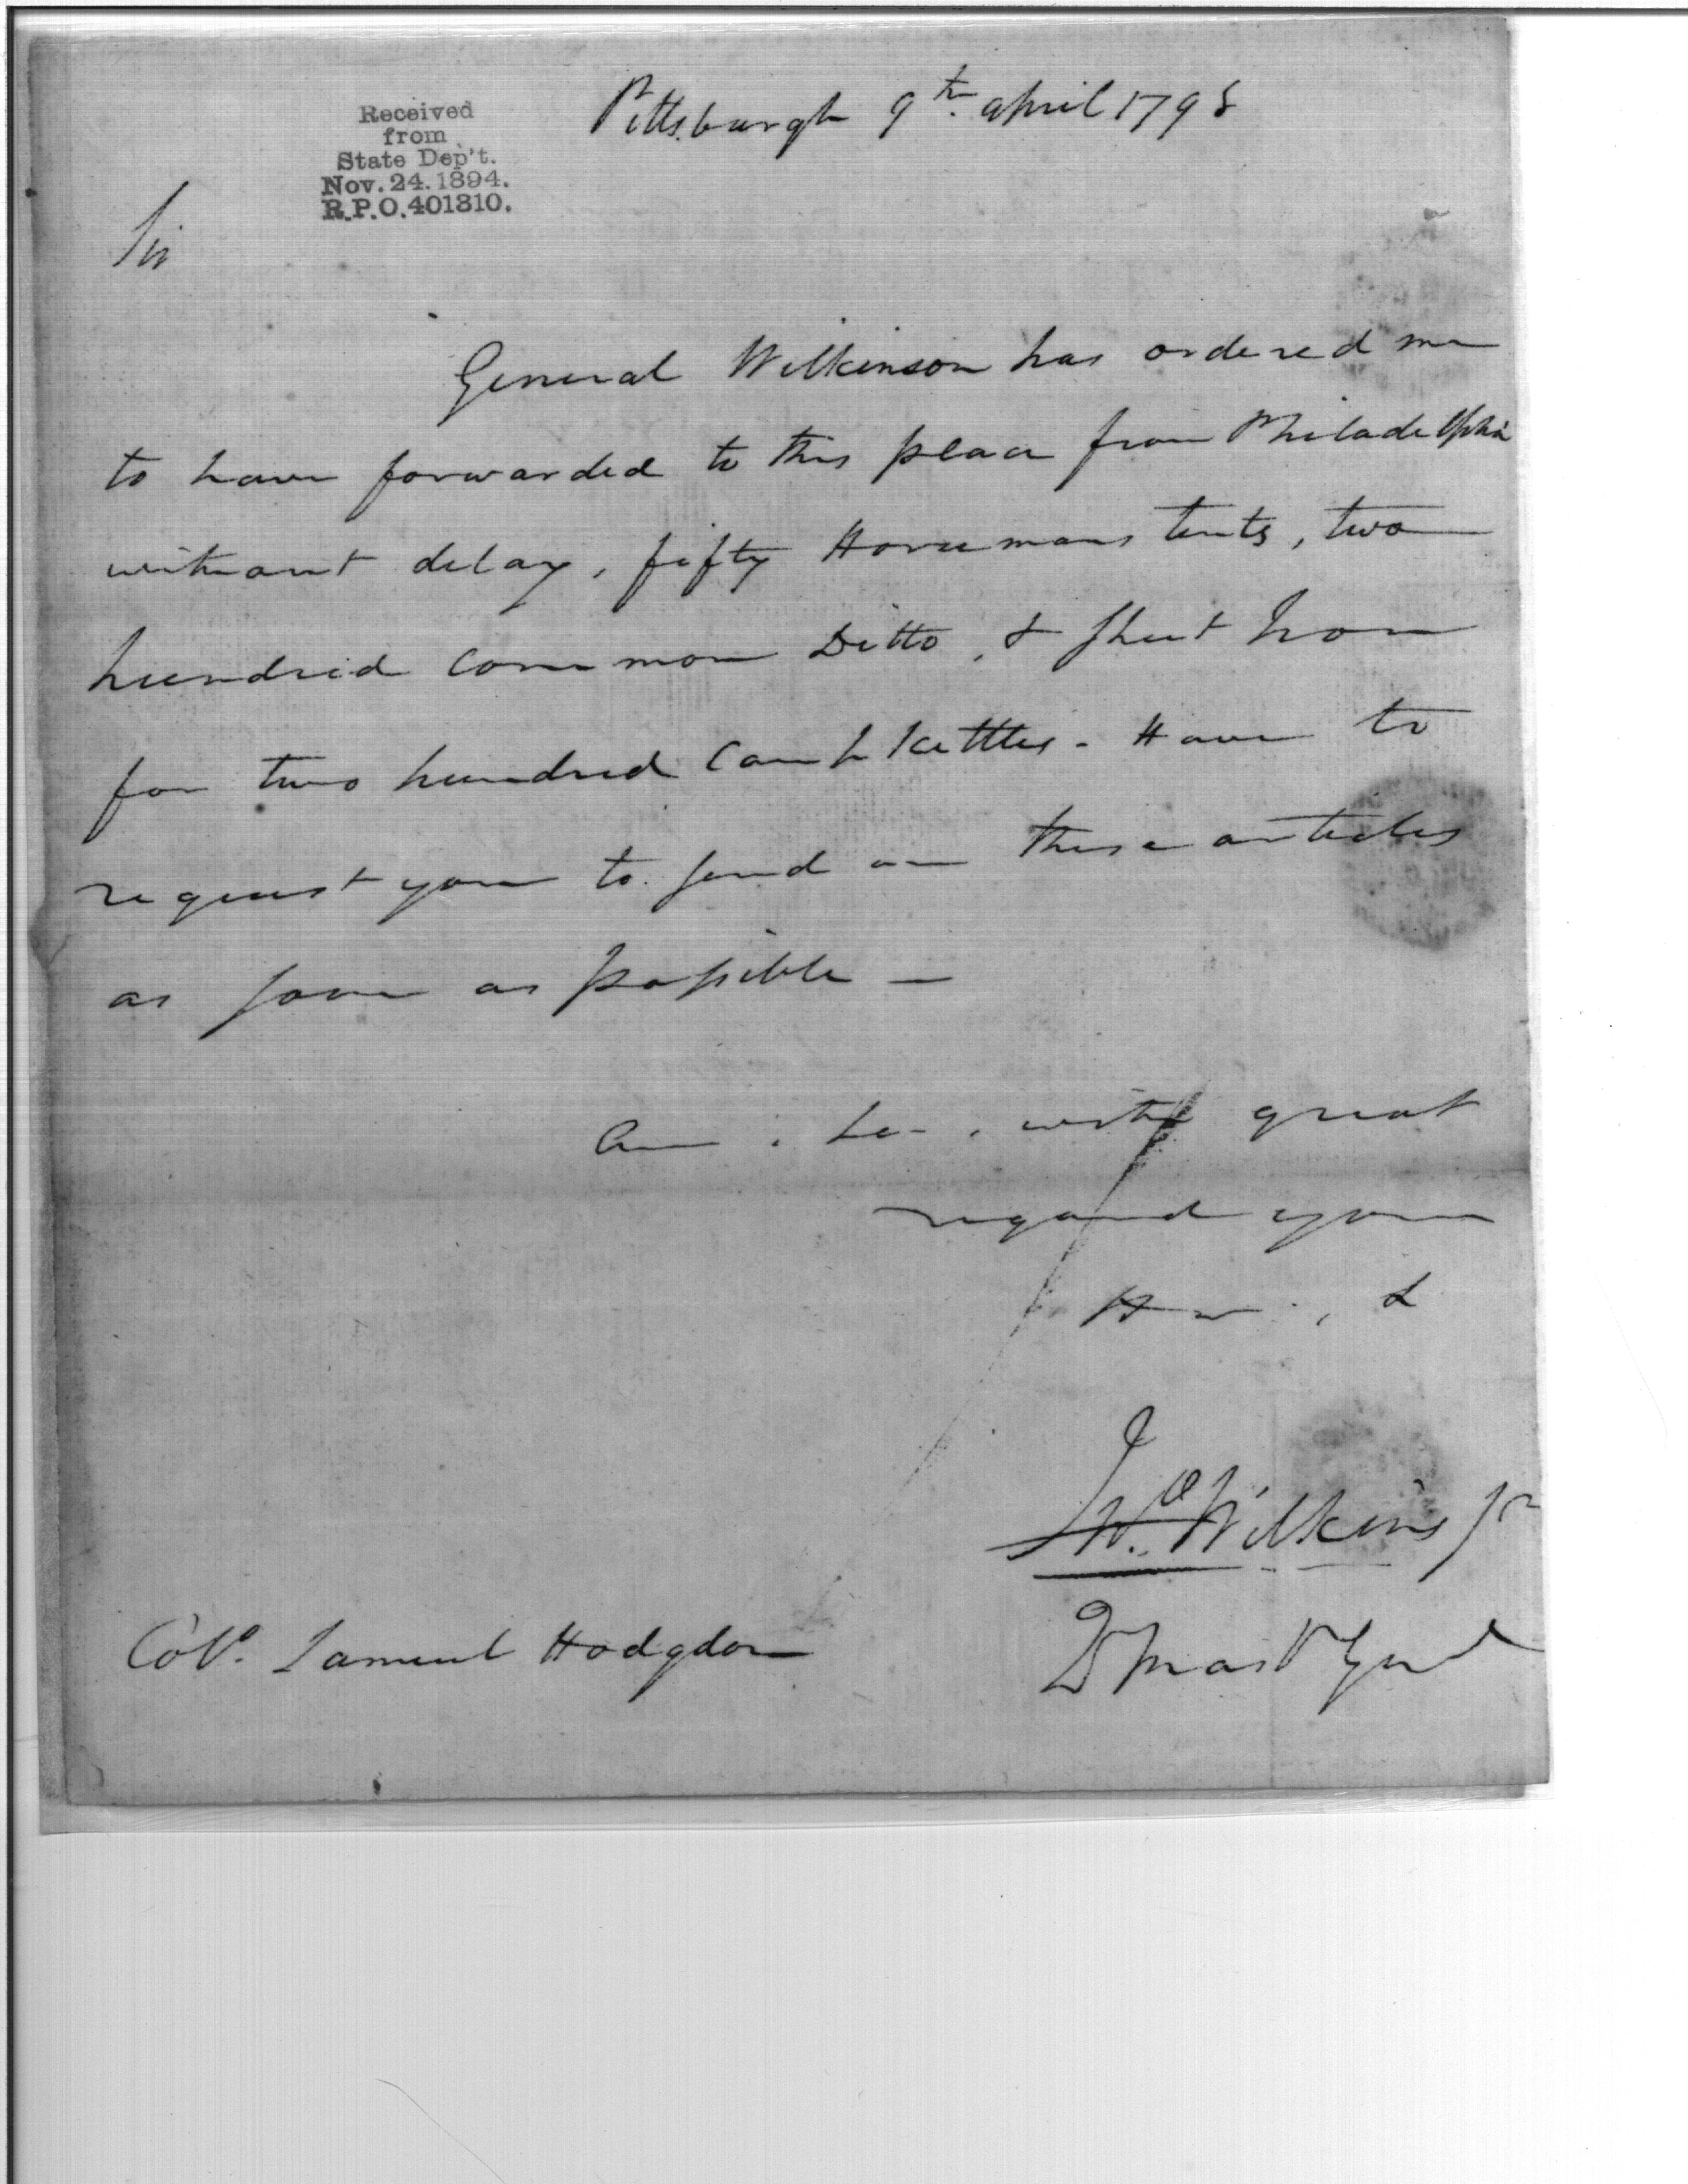 Received
from
State Dep't.
Nov. 24. 1894.
R.P.O. 401310.
Pittsburgh 9th. april 1798
Sir
General Wilkinson has ordered me
to have forwarded to this place from Philadelphia
without delay, fifty Horsemans tents, two
hundred common Ditto, & sheet Iron
for two hundred Camp kettles - Have to
request you to send on these articles
as soon as possible -
Am . &c - . with great
regard your
H , &
Jno. Wilkins Jr
Qr Mastr Genl
Colo. Samuel Hodgdon